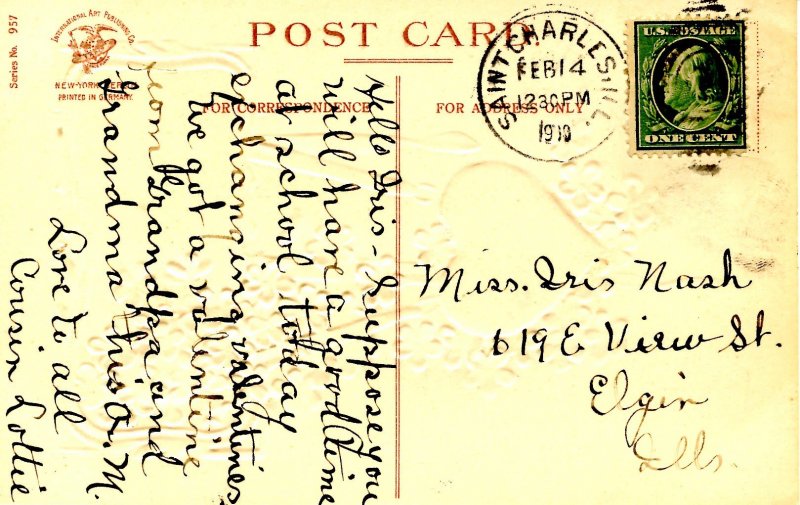 Series No. 957
International Art Publishing Co.
NEW-YORK
PRINTED IN GERMANY.
POST CARD
FOR CORRESPONDENCE
FOR ADDRESS ONLY
SAINT CHARLES, ILL.
FEB 14
12 30 PM
1910
U.S. POSTAGE
ONE CENT
Hello Iris - Suppose you
will have a good time
at school today
exchanging valentines
we got a valentine
from Grandpa and
Grandma this A. M.
Love to all
Cousin Lottie
Miss. Iris Nash
619 E View St.
Elgin
Ills.